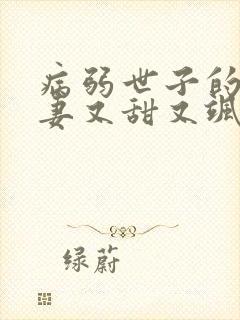 病弱世子的
妻又甜又飒
绿蔚